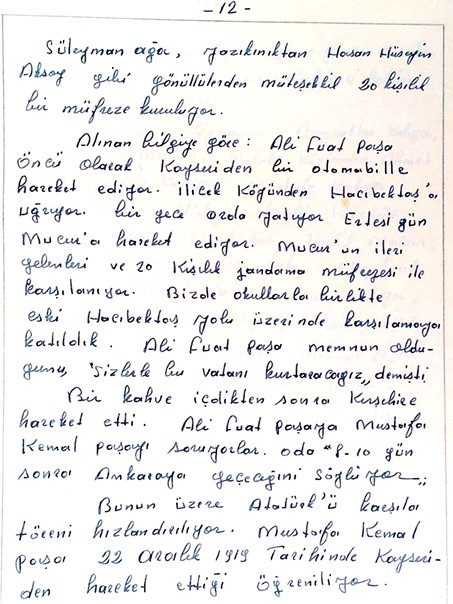 -12-
Süleyman ağa, yazıkınıktan Hasan Hüseyin
Aksoy gibi gönüllülerden müteşekkil 20 kişilik
bir müfreze kuruluyor.
Alınan bilgiye göre: Ali Fuat paşa
Öncü olarak Kayseriden bir otomobille
hareket ediyor. İlicek Köyünden Hacıbektaş'a
uğruyor. bir gece orda yatıyor Ertesi gün
Mucur'a hareket ediyor. Mucur'un ileri
gelenleri ve 20 Kişilik jandama müfrezesi ile
karşılanıyor. Bizde okullarla birlikte
eski Hacıbektaş yolu üzerinde karşılamaya
katıldık. Ali Fuat paşa memnun oldu-
ğunu, "Sizlerle bu vatanı kurtaracağız,, demişti
Bir kahve içdikten sonra Kırşehire
hareket etti. Ali Fuat paşaya Mustafa
Kemal paşayı soruyorlar. oda "8-10 gün
sonra Ankaraya geçeceğini söylüyor,,
Bunun üzere Atatürk'ü karşıla
töreni hızlandırılıyor. Mustafa Kemal
paşa 22 Aralık 1919 Tarihinde Kayseri-
den hareket ettiği öğreniliyor.